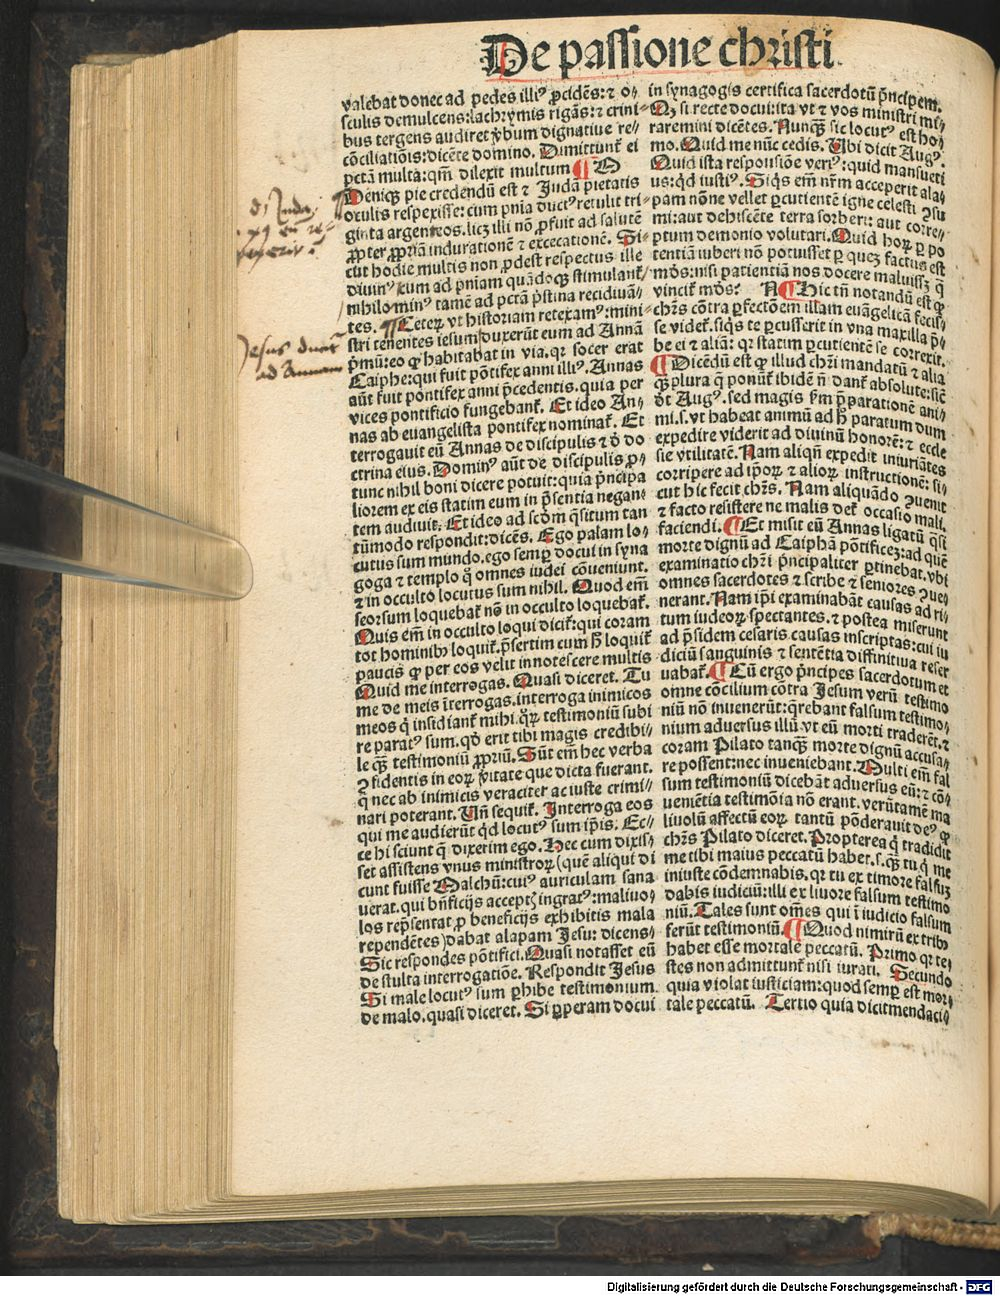 De passione christi
valebat donec ad pedes illiꝰ ꝓcidēs: ⁊ o-
sculis demulcens: lachrymis rigās: ⁊ crini-
bus tergens audiret ṽbum dignatiue re-
cōciliatiōis: dicēte domino. Dimittunt᷑ ei
pctā multa: qm̄ dilexit multum ¶ O
Deniqꝫ pie credendū est ⁊ Judā pietatis
oculis respexisse: cum pnīa ductꝰ retulit tri-
ginta argenteos. licꝫ illi nō ꝓfuit ad salutē
ꝓpter ꝓpriā indurationē ⁊ excecationē. Si-
cut hodie multis non ꝓdest respectus ille
diuinꝰ cum ad pniam quādoqꝫ stimulant᷑
nihilominꝰ tamē ad pctā pristina recidiuā-
tes. ¶ Ceterꝝ vt historiam retexamꝰ: mini-
stri tenentes iesum duxerūt eum ad Annā
pͥmū: eo ꝙ habitabat in via. qꝛ socer erat
Caiphe: qui fuit pōtifex anni illiꝰ. Annas
aūt fuit pontifex anni p̄cedentis. quia per
vices pontificio fungebant᷑. Et ideo An-
nas ab euangelista pontifex nominat᷑. Et
terrogauit eū Annas de discipulis ⁊ d̓ do
ctrina eius. Dominꝰ aūt de discipulis ꝓ-
tunc nihil boni dicere potuit: quia pͥncipa
liorem ex eis statim eum in p̄sentia negan-
tem audiuit. Et ideo ad scd̓m q̄situm tan
tūmodo respondit: dicēs. Ego palam lo-
cutus sum mundo. ego semꝑ docui in syna
goga ⁊ templo q̊ omnes iudei cōueniunt.
⁊ in occulto locutus sum nihil. Quod em̄
seorsum loquebat᷑ nō in occulto loquebat᷑.
Quis em̄ in occulto loqui dicit᷑: qui coram
tot hominibꝰ loquit᷑. p̄sertim cum h̄ loquit᷑
paucis ꝙ per eos velit innotescere multis
Quid me interrogas. Quasi diceret. Tu
me de meis īterrogas. interroga inimicos
meos qͥ insidiant᷑ mihi. qꝛ testimoniū subi
re paratꝰ sum. qd̓ erit tibi magis credibi-
le qꝫ testimoniū ꝓpriū. Sūt em̄ hec verba
ꝯfidentis in eorꝝ ṽitate que dicta fuerant.
q̄ nec ab inimicis veraciter ac iuste crimi-
nari poterant. Vn̄ sequit᷑. Interroga eos
qui me audierūt qd̓ locutꝰ sum ip̄is. Ec-
ce hi sciunt q̄ dixerim ego. Hec cum dixis-
set assistens vnus ministrorꝝ (quē aliqui di
cunt fuisse Malchū: cuiꝰ auriculam sana
uerat. qui bn̄ficijs acceptꝭ ingratꝰ: maliuo-
los rep̄sentat ꝓ beneficijs exhibitis mala
rependētes) dabat alapam Jesu: dicens-
Sic respondes pōtifici. Quasi notasset eū
de stulta interrogatiōe. Respondit Jesus
Si male locutꝰ sum ꝑhibe testimonium
de malo. quasi diceret. Si ꝑperam docui
in synagogis certifica sacerdotū pͥncipem.
Qꝫ si recte docui: ita vt ⁊ vos ministri mi-
raremini dicētes. Nunqꝫ sic locutꝰ est ho-
mo. Quid me nūc cedis. Vbi dicit Augꝰ.
Quid ista responsiōe veriꝰ: quid mansueti
us: qd̓ iustiꝰ. Siqs em̄ nr̄m acceperit ala-
pam nōne vellet ꝑcutientē igne celesti ꝯsu
mi: aut dehiscēte terra sorberi: aut corre-
ptum demonio volutari. Quid horꝝ ꝑ po
tentiā iuberi nō potuisset ꝑ quez factus est
mōs: nisi patientiā nos docere maluissꝫ q̄
vincit᷑ mōs? N ¶ Hic tn̄ notandū est ꝙ
chr̄s cōtra ꝑfectōem illam euāgelicā fecis-
se videt᷑. siqs te ꝑcusserit in vna maxilla p̄-
be ei ⁊ aliā: qꝛ statim ꝑcutientē se correxit.
¶ Dicēdū est ꝙ illud chr̄i mandatū ⁊ alia
qꝫ plura q̄ ponunt᷑ ibidē nō dant᷑ absolute: sic̄
d̓t Augꝰ. sed magis ẜm p̄parationē ani-
mi. s. vt habeat animū ad h̄ paratum dum
expedire viderit ad diuinū honorē: ⁊ eccle
sie vtilitatē. Nam aliqn̄ expedit iniuriātes
corripere ad ip̄orꝝ ⁊ aliorꝝ instructionē: si-
cut hic fecit chr̄s. Nam aliquādo ꝯuenit
⁊ facto resistere ne malis det᷑ occasio mali
faciendi. ¶ Et misit eū Annas ligatū q̄si
morte dignū ad Caiphā pōtificez: ad quē
examinatio chr̄i pͥncipaliter ꝑtinebat. vbi
omnes sacerdotes ⁊ scribe ⁊ seniores ꝯue-
nerant. Nam ip̄i examinabāt causas ad ri-
tum iudeorꝝ spectantes. ⁊ postea miserunt
ad p̄sidem cesaris causas inscriptas: cui iu
diciū sanguinis ⁊ sentētia diffinitiua reser
uabat᷑. ¶ Cū ergo pͥncipes sacerdotum et
omne cōcilium cōtra Jesum verū testimo
niū nō inuenerūt: q̄rebant falsum testimo-
nium aduersus illū. vt eū morti traderēt. ⁊
coram Pilato tanqꝫ morte dignū accusa-
re possent: nec inueniebant. Multi em̄ fal
sum testimoniū dicebāt aduersus eū: ⁊ cō-
ueniētia testimōia nō erant. verūtamē ma
liuolū affectū eorꝝ tantū pōderauit deꝰ ꝙ
chr̄s Pilato diceret. Propterea qͥ tradidit
me tibi maius peccatū habet. s. qꝫ tu qͥ me
iniuste cōdemnabis. qꝛ tu ex timore falsuꝫ
dabis iudiciū: illi ex liuore falsum testimo
niū. Tales sunt om̄es qui ī iudicio falsum
ferūt testimoniū. ¶ Quod nimirū ex tribꝰ
habet esse mortale peccatū. Primo qꝛ te-
stes non admittunt᷑ nisi iurati. Secundo
quia violat iusticiam: quod semꝑ est mor-
tale peccatū. Tertio quia dicit mendaci-
Jesus
ad Annam
Digitalisierung gefördert durch die Deutsche Forschungsgemeinschaft - DFG